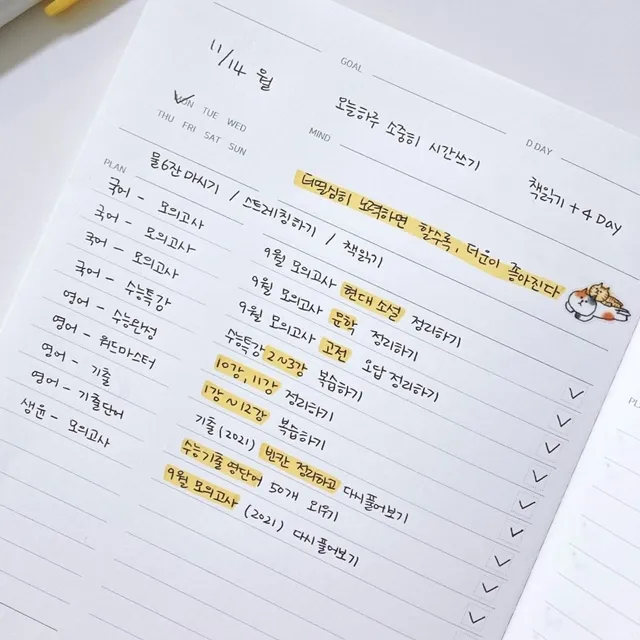 11/14 월
GOAL
오늘하루 소중히 시간쓰기
D DAY
책읽기 + 4 Day
MON TUE WED
THU FRI SAT SUN
MIND
더열심히 노력하면 할수록, 더운이 좋아진다
PLAN
물6잔 마시기 / 스트레칭하기 / 책읽기
국어 - 모의고사 9월 모의고사 현대 소설 정리하기
국어 - 모의고사 9월 모의고사 문학 정리하기
국어 - 모의고사 9월 모의고사 고전 오답 정리하기
국어 - 수능특강 수능특강 2~3강 복습하기
영어 - 수능완성 10강, 11강 정리하기
영어 - 워드마스터 1강~12강 복습하기
영어 - 기출 기출 (2021) 빈칸 정리하고 다시풀어보기
영어 - 기출단어 수능기출 영단어 50개 외우기
생윤 - 모의고사 9월 모의고사 (2021) 다시풀어보기